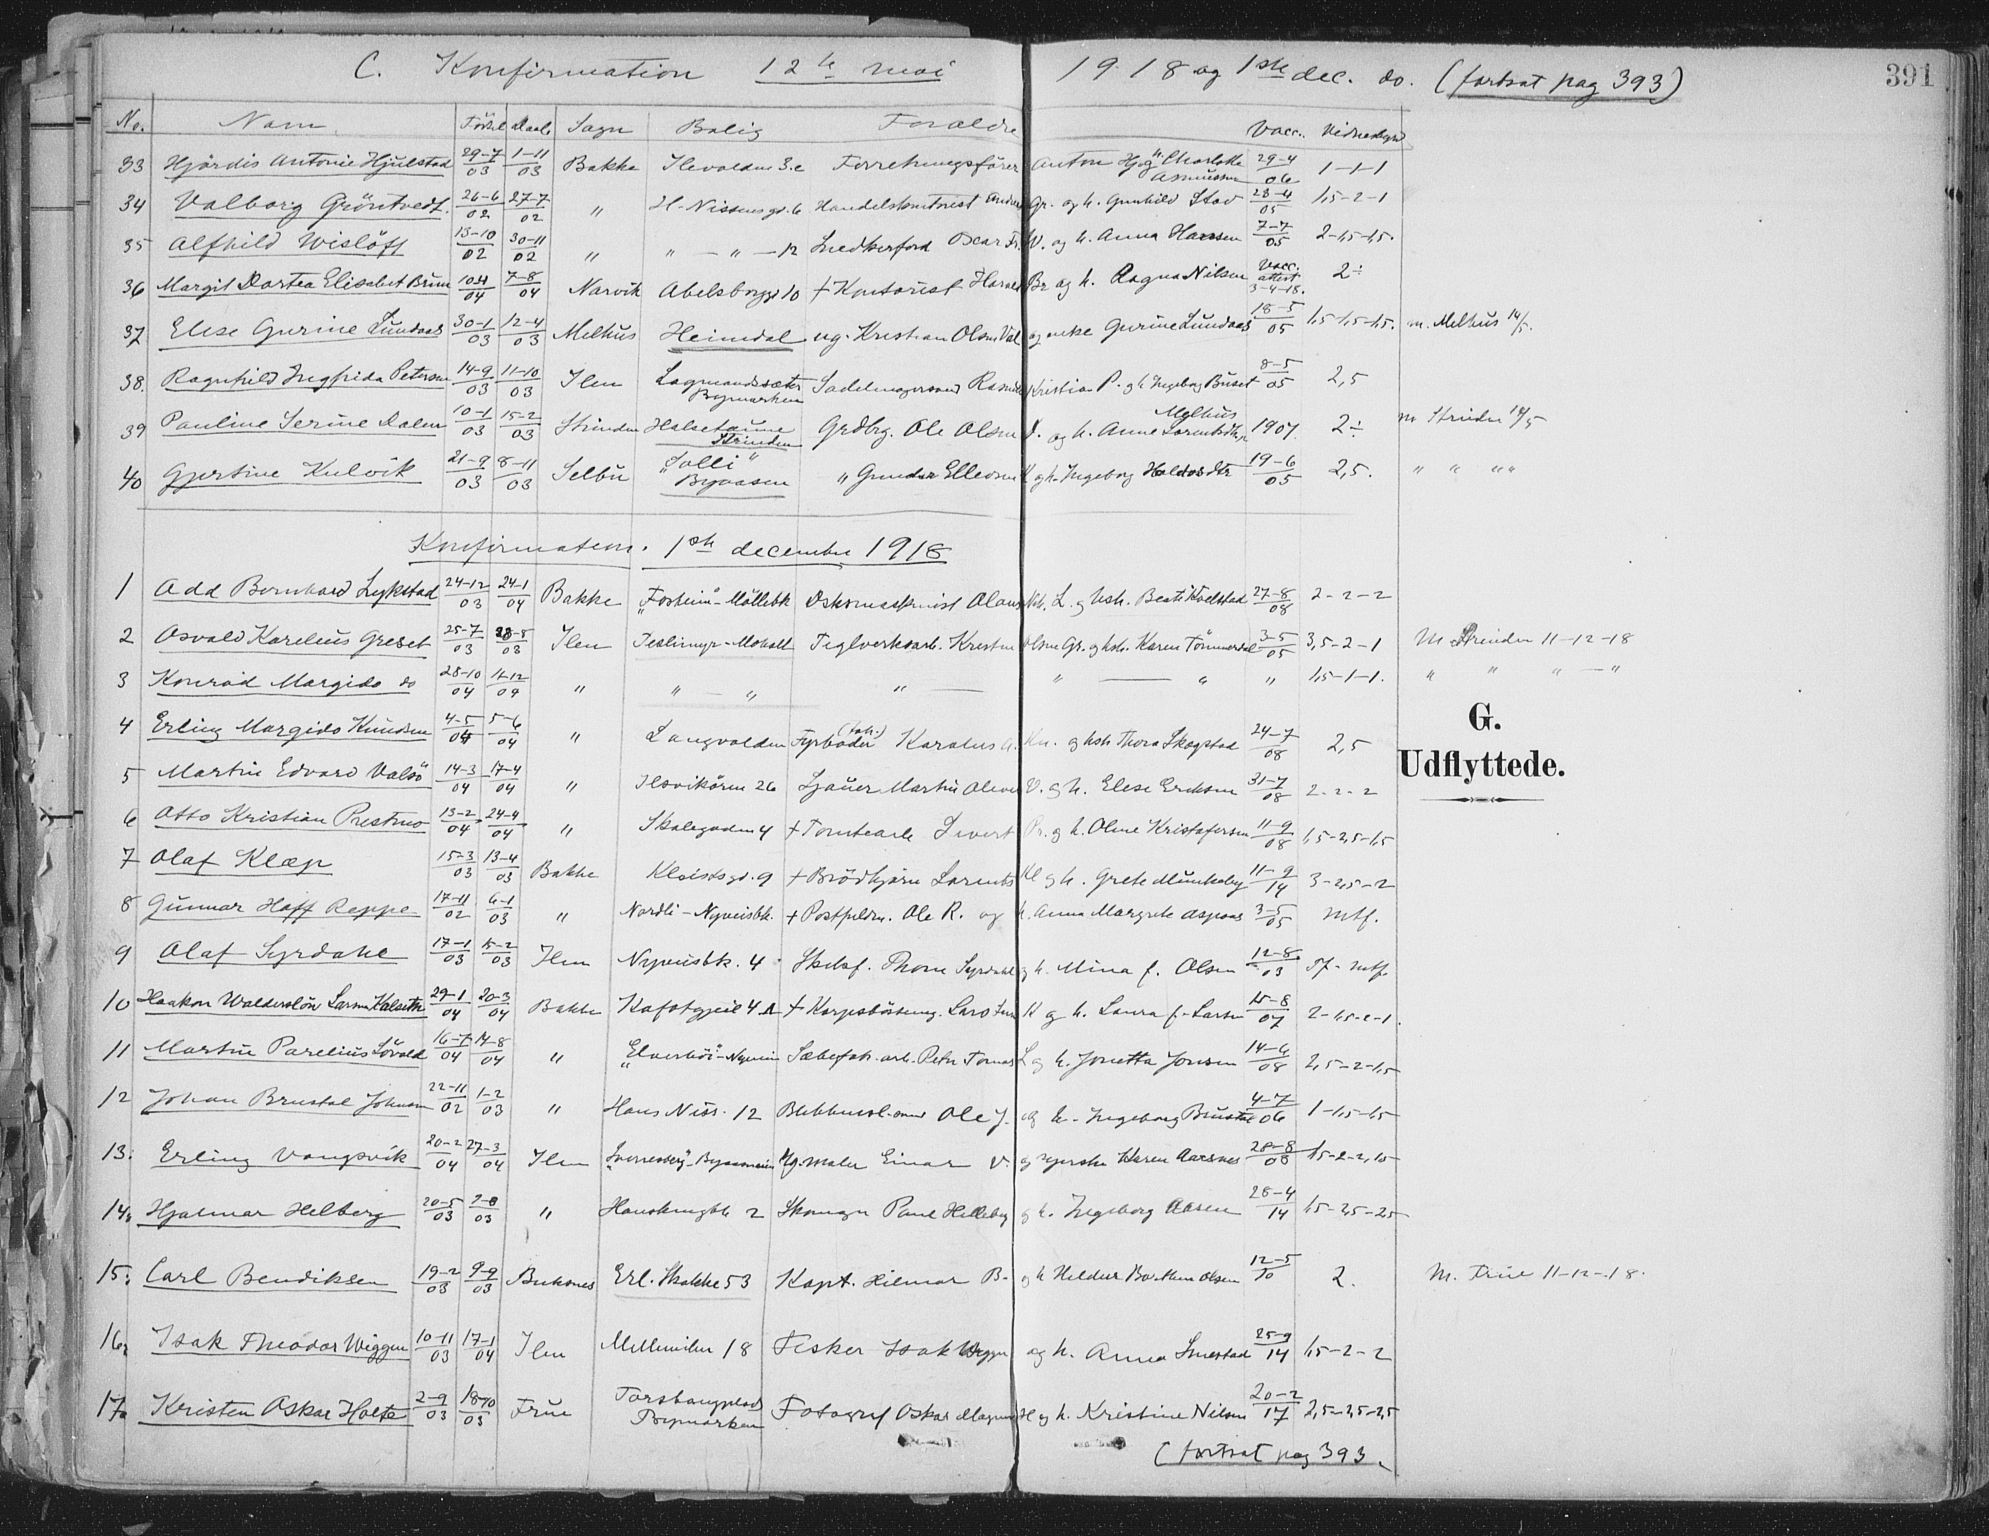 391
C. Konfirmation 12te mai 1918 og 1ste dec. do. (fortsat pag 393)
No. Navn Födsel Daab Sogn Bolig Foraldre Vacc. Vidnesbyrd
33 Hjördis Antonie Hjulstad 29-7/03 1-11/03 Bakke Ilevolden 3.c Forretningsförer Anton Hj. og h. Charlotte Asmussen 29-4/06 1-1-1
34 Valborg Gröntvedt 26-6/02 27-7/02 " H-Nissensgd. 6 Handelskontorist Gr. og h. Gunhild Stav 28-4/05 1,5-2-1
35 Alfhild Wislöff 13-10/02 30-11/02 " " - " - 12 Snedkerford Oscar Fr. W. og h. Anna Hansen 7-7/05 2-1,5-1,5.
36 Margit Dortea Elisabet Bruun /04 7-8/04 Narvik Abelsborggd 10 + Kontorist Harald Br og h. Ragna Nilsen Vacc. attest 3-4-18. 2÷
37 Elise Gurine Lundaas 30-1/03 12-4/03 Melhus Heimdal ug. Kristian Olsen Val og enke Gurine Lundaas 18-5/05 1,5-1,5-1,5. m. Melhus 14/5.
38. Ragnhild Ingfrida Petersen 14-9/03 11-10/03 Ilen Lagmandssæter Bymarken Sadelmagersvend Kristian P. og h Ingeborg Buset 8-5/05 2,5
39 Pauline Serine Dalen 10-1/03 15-2/03 Strinden Halsetaune Strinden Grdbrg. Ole Olsen D. og h. Anne Melhus 1907. 2÷ m Strinden 14/5
40 Gjertine Kulvik 21-9/03 8-11/03 Selbu "Solli" Byaasen " Gunder Ellevsen K og h. Ingeborg Haldosdtr 19-6/05 2,5. " " " "
Konfirmation. 1ste december 1918
1 Odd Bernhard Lykstad 24-12/03 24-1/04 Bakke "Forheim"-Möllebk Olaus L. og hsh. Beate Kvelstad 27-8/08 2-2-2
2 Osvald Karelius Greset 25-7/03 /03 Ilen Teglverksarb. Kristen Olsen Gr. og hsh. Karen Tömmerdal 3-5/05 3,5-2-1 M. Strinden 11-12-18
3 Konrad Margido do 28-10/04 11-12/04 " " - " " - " - " " 1,5-1-1. " " " - "
4 Erling Margido Knudsen 4-5/04 5-6/04 " Langvolden Fyrböder (tob.) Karolus Kn. og hsh Thora Skogstad 24-7/08 2,5
G.
Udflyttede.
5 Martin Edvard Valsö 14-3/04 17-4/04 " Ilsvikören 26 Sjauer Martin Oliver V. og h. Elise Eriksen 31-7/08 2-2-2
6 Otto Kristian Prestmo 13-2/04 24-4/04 " Skolegaden 4 + Tomtearb Sivert Pr. og h. Oline Kristofersen 11-9/08 1,5-2,5-1,5
7 Olaf Klæp 15-3/03 13-4/03 Bakke Kloistsgd. 9 + Brödkjörer Lorents Kl og h. Grete Munkeby 11-9/14 3-2,5-2
8 Gunnar Hoff Reppe 17-11/02 6-1/03 " Nordli-Nyveisbk. + Postfuldm. Ole R. og h. Anna Margrete Aspaas 3-5/05 mtf.
9 Olaf Syrdahl 17-1/03 15-2/03 Ilen Nyveisbk. 4 Skibsf. Thom Syrdahl og h. Mina f. Olsen 12-8/03 Tf-mtf.
10 Haakon Waldersløw Larsen Halseth 29-1/04 20-3/04 Bakke 4 A + Karpsbössemg. K og h. Laura f. Larsen 15-8/07 2-1,5-2-1.
11 Martin Parelius Lövold 16-7/04 14-8/04 " "Elverhöi"-Nyveien Sæbefab.-arb. Peter Tomas L og h. Jonetta Jonsen 14-6/08 2,5-2-1,5
12 Johan Brustal Johnsen 22-11/02 1-2/03 " Hans Niss. 12 Blikkensl.-svend Ole J. og h. Ingeborg Brustal 4-7/06 1-1,5-1,5
13. Erling Vangsvik 20-2/04 27-3/04 Ilen "Sverresborg"-Byaasveien Ug. maler Einar V. og syerske Karen Aarsnes 28-8/08 1,5-2-2,1,5
14. Hjalmar Helberg 20-5/03 2-8/03 " Hanskemgbk 2 Skomgr Paul Helleberg og h. Ingeborg Aasen 28-4/14 1,5-2,5-2,5
15. Carl Bendiksen 19-2/03 9-9/03 Buksnes Erl. Skakke 53 Kapt. Hilmar B. og h Heldur Olsen 12-5/10 2. M. Frue 11-12-18.
16. Isak Theodor Wiggen 10-11/03 17-1/04 Ilen Mellemilen 18 Fisker Isak Wiggen og h. Anna Smestad 25-9/14 1,5-2-2
17. Kristen Oskar Holte 2-9/03 18-10/03 Frue Forsbangplads Bymarken Fotograf Oskar Magnus H og h. Kristine Nilsen 20-2/17 2,5-2,5-2,5
(fortsat pag 393.